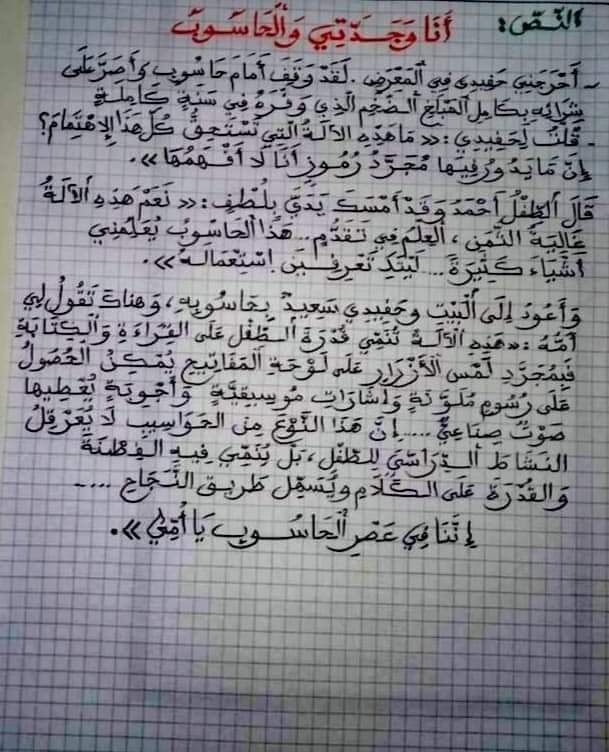 النّصّ: أَنَا وَجَدَّتِي وَالْحَاسُوبُ
ـ أَحْرَجَنِي حَفِيدِي فِي الْمَعْرَضِ. لَقَدْ وَقَفَ أَمَامَ حَاسُوبٍ وَأَصَرَّ عَلَى
شِرَائِهِ بِكَامِلِ الْمَبْلَغِ الضَّخْمِ الَّذِي وَفَّرَهُ فِي سَنَةٍ كَامِلَةٍ
ـ قُلْتُ لِحَفِيدِي: «مَا هَذِهِ الآلَةُ الَّتِي تَسْتَحِقُّ كُلَّ هَذَا الاِهْتِمَامَ؟
إِنَّ مَا يَدُورُ فِيهَا مُجَرَّدُ رُمُوزٍ أَنَا لَا أَفْهَمُهَا».
قَالَ الطِّفْلُ أَحْمَدُ وَقَدْ أَمْسَكَ يَدَيَّ بِلُطْفٍ: «نَعَمْ هَذِهِ الآلَةُ
غَالِيَةُ الثَّمَنِ، الْعِلْمُ فِي تَقَدُّمٍ... هَذَا الْحَاسُوبُ يُعَلِّمُنِي
أَشْيَاءَ كَثِيرَةً... لَيْتَكِ تَعْرِفِينَ اِسْتِعْمَالَهُ».
وَأَعُودُ إِلَى الْبَيْتِ وَحَفِيدِي سَعِيدٌ بِحَاسُوبِهِ، وَهُنَاكَ تَقُولُ لِي
أُمُّهُ: «هَذِهِ الآلَةُ تُنَمِّي قُدْرَةَ الطِّفْلِ عَلَى الْقِرَاءَةِ وَالْكِتَابَةِ
فَبِمُجَرَّدِ لَمْسِ الْأَزْرَارِ عَلَى لَوْحَةِ الْمَفَاتِيحِ يُمْكِنُ الْحُصُولُ
عَلَى رُسُومٍ مُلَوَّنَةٍ وَإِشَارَاتٍ مُوسِيقِيَّةٍ وَأَجْوِبَةٍ يُعْطِيهَا
صَوْتٌ صِنَاعِيٌّ.... إِنَّ هَذَا النَّوْعَ مِنَ الْحَوَاسِيبِ لَا يُعَرْقِلُ
النَّشَاطَ الدِّرَاسِيَّ لِلطِّفْلِ، بَلْ يُنَمِّي فِيهِ الْفِطْنَةَ
وَالْقُدْرَةَ عَلَى الْكَلَامِ وَيُسَهِّلُ طَرِيقَ النَّجَاحِ ....
إِنَّنَا فِي عَصْرِ الْحَاسُوبِ يَا أُمِّي».